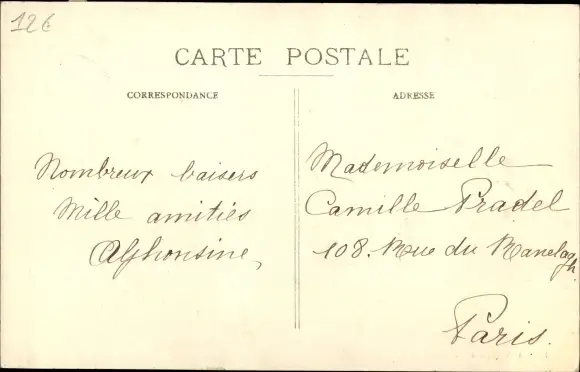 12€
CARTE POSTALE
CORRESPONDANCE
Nombreux baisers
Mille amitiés
Alphonsine
ADRESSE
Mademoiselle
Camille Pradel
108. Rue du Ranelagh.
Paris.